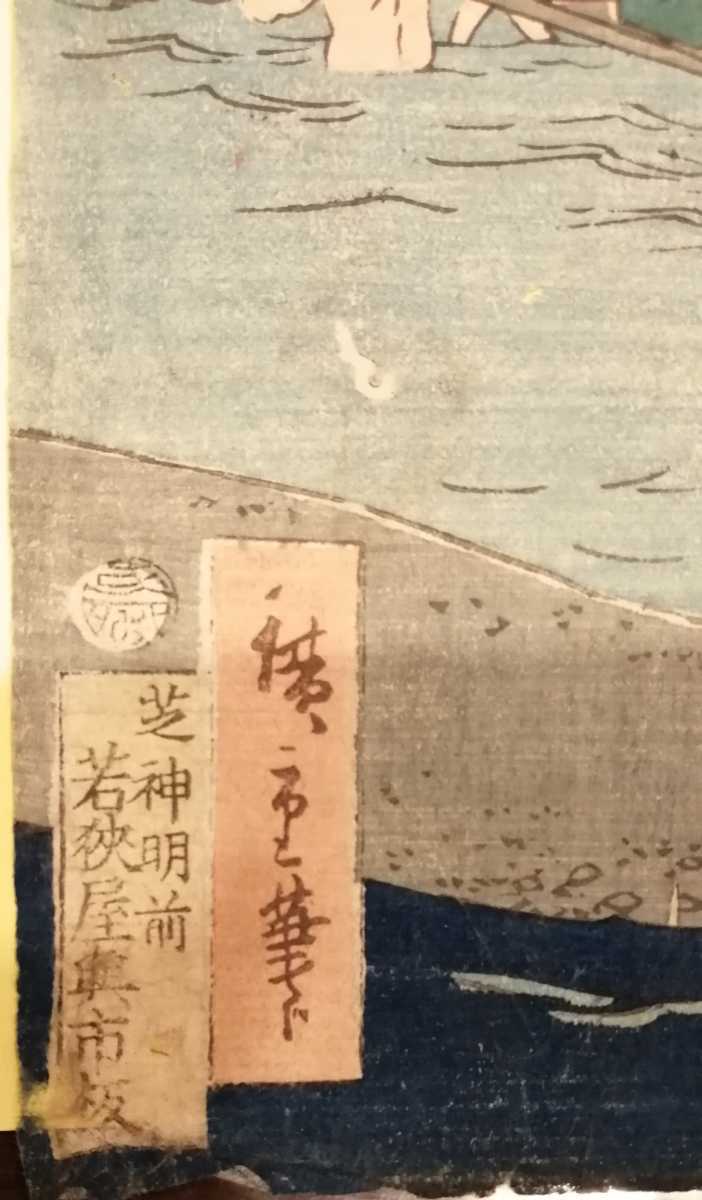 廣重筆
芝神明前
若狹屋與市板